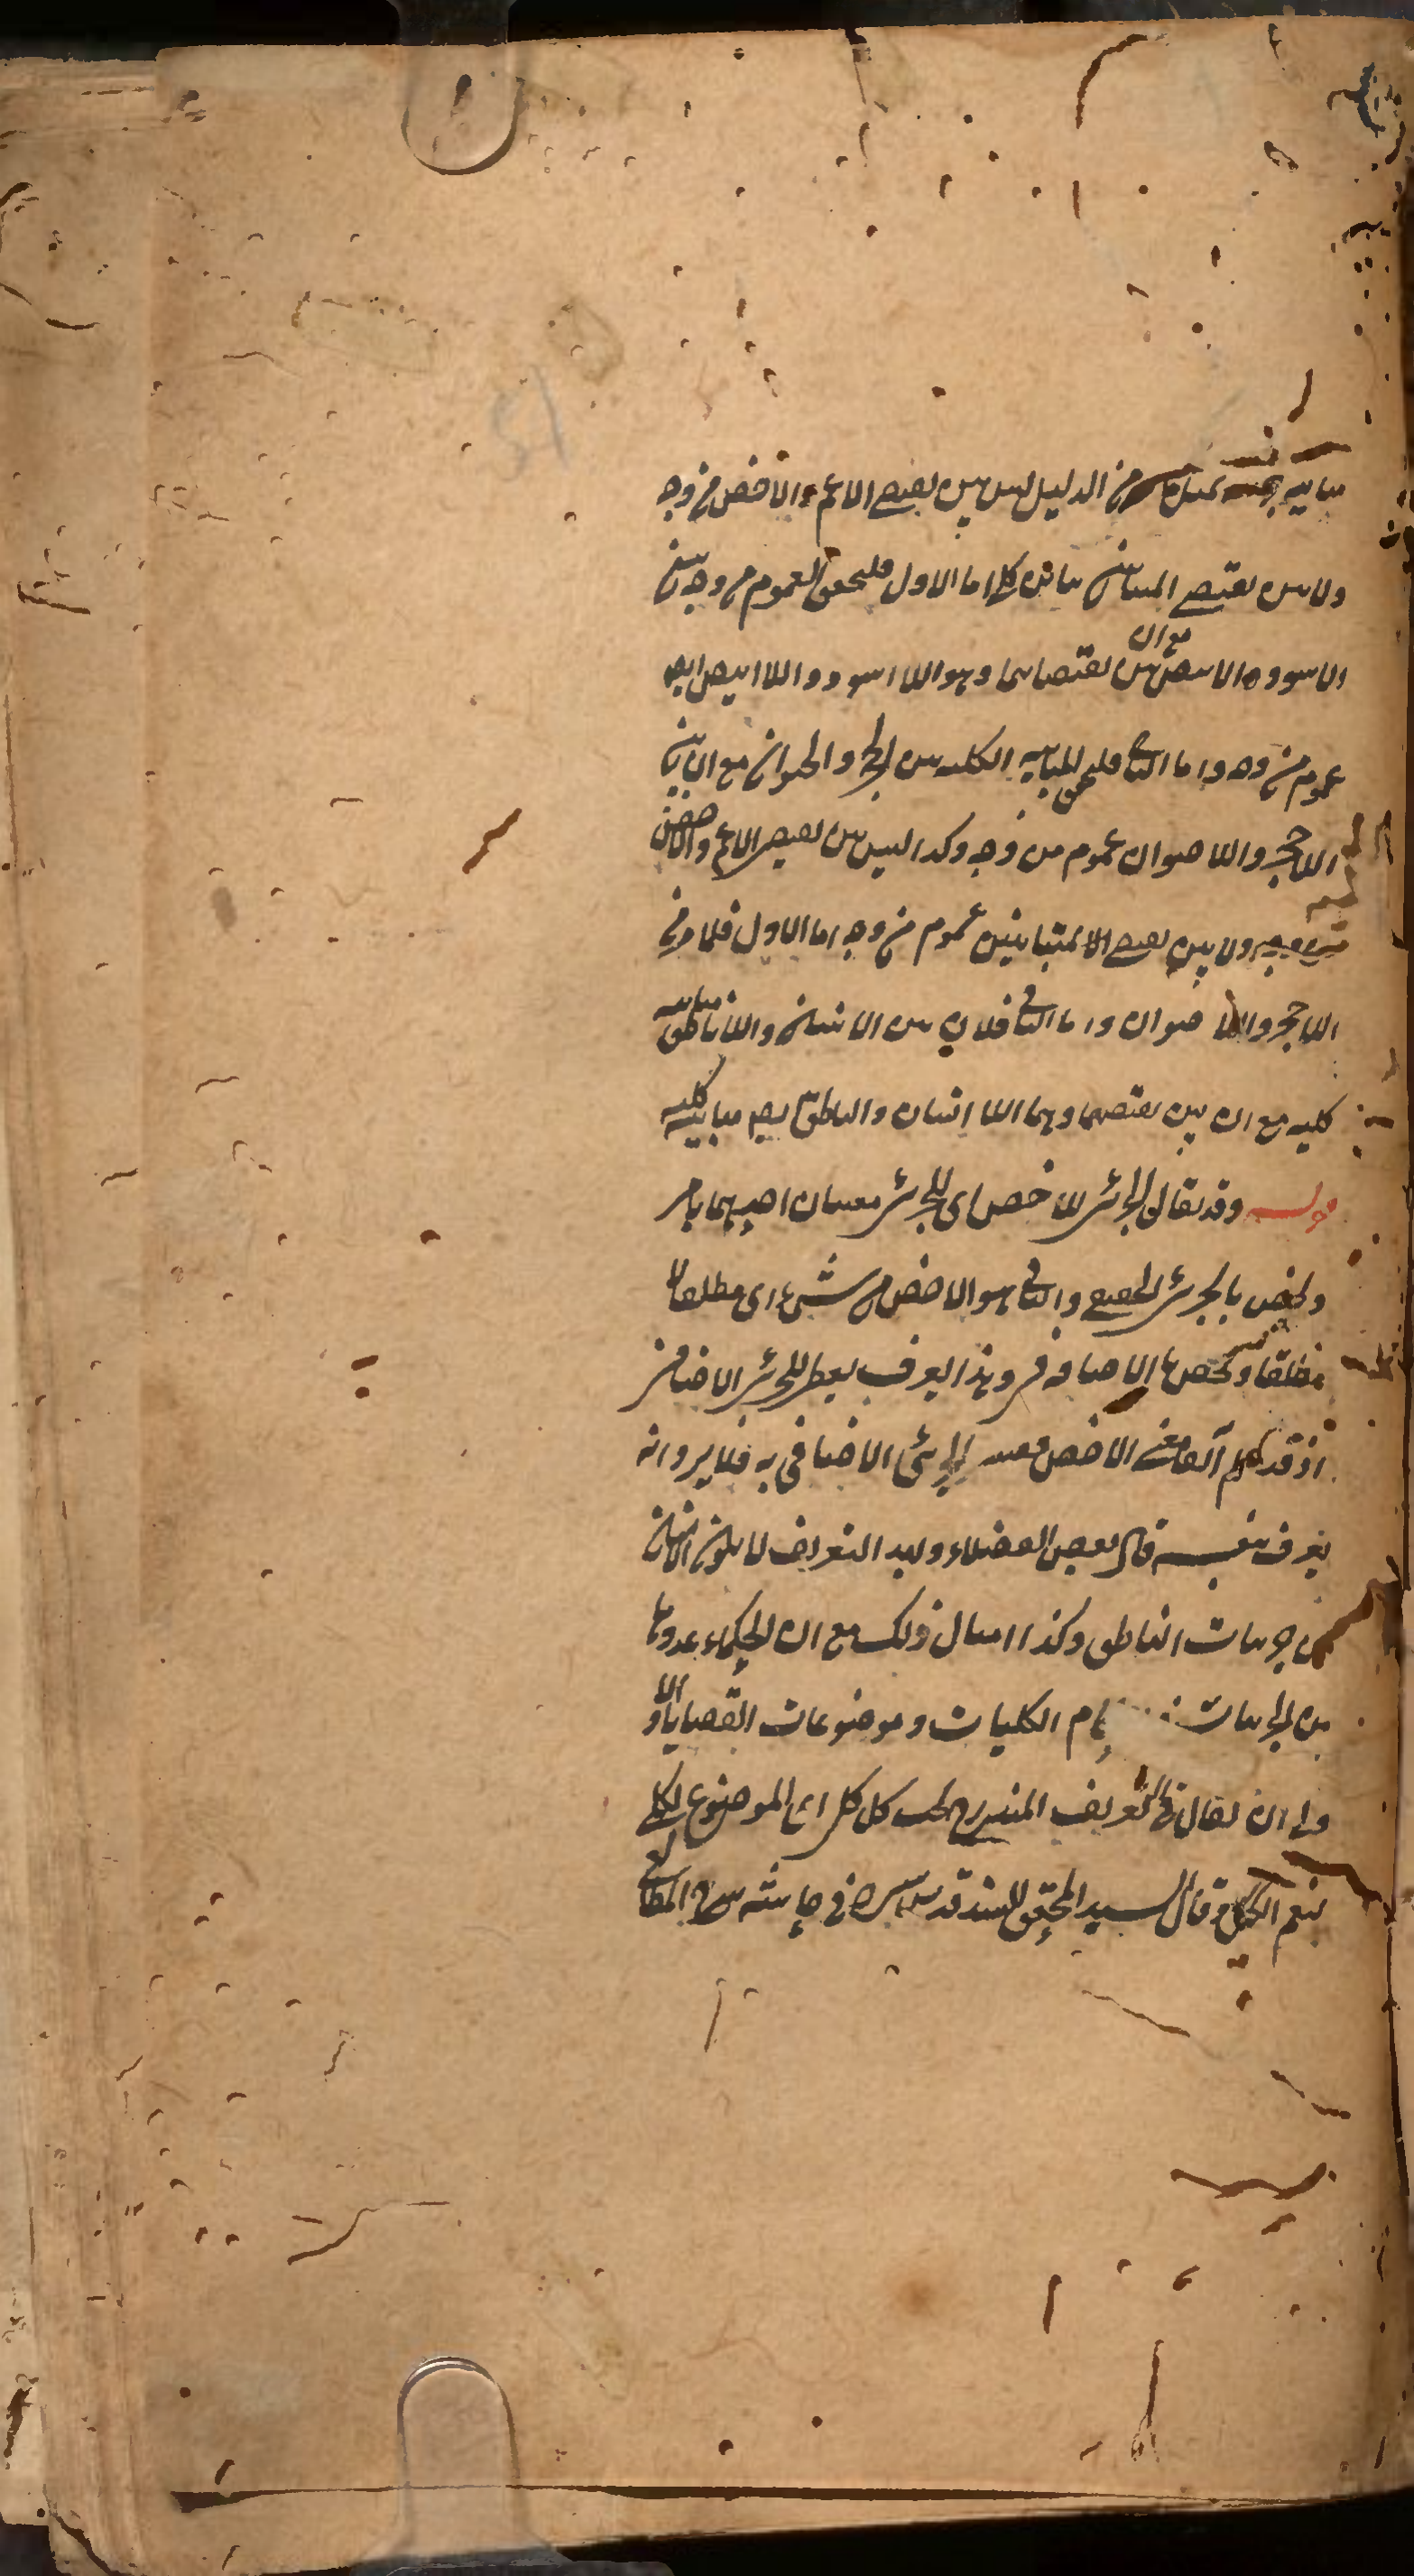 مباينة من الدليل ليس بين نقيضي الاعم والاخص من وجه
ولا بين نقيضي المتباينين تباين كلي اما الاول فلتحقق العموم من وجه بين
الاسود والابيض مع ان بين نقيضاهما وهو اللا اسود واللا ابيض ايضا
عموم من وجه واما الثاني فلتحقق المباينة الكلية بين الحجر والحيوان مع ان بين
اللاحجر واللاحيوان عموم من وجه وكذا ليس بين نقيضي الاعم والاخص
من وجه ولا بين نقيضي المتباينين عموم من وجه اما الاول فلما مر في
اللاحجر واللاحيوان واما الثاني فلان بين الانسان واللاناطق مباينة
كلية مع ان بين نقيضهما وهما اللا انسان والناطق ايضا مباينة كلية
قوله وقد يقال الجزئي للاخص اى للجزئي معنيان احدهما ما مر
ويختص بالجزئي الحقيقي والثاني هو الاخص من شيء اى مطلقا
مطلقا ويختص بالاضافي وهذا يعرف للجزئي الاضافي
اذ قد علم الاخص الاضافي به فلا يرد انه
يعرف بنفسه قال بعض الفضلاء التعريف لا يكون الانسان
من جزئيات الناطق وكذا امثال ذلك مع ان الحكماء عدوها
من الجزئيات الكليات وموضوعات القضايا
ان يقال في التعريف المندرج تحت كل كلي اى الموضوع لكلي
نعم قال السيد المحقق السند قدس سره في حاشية شرح المطالع